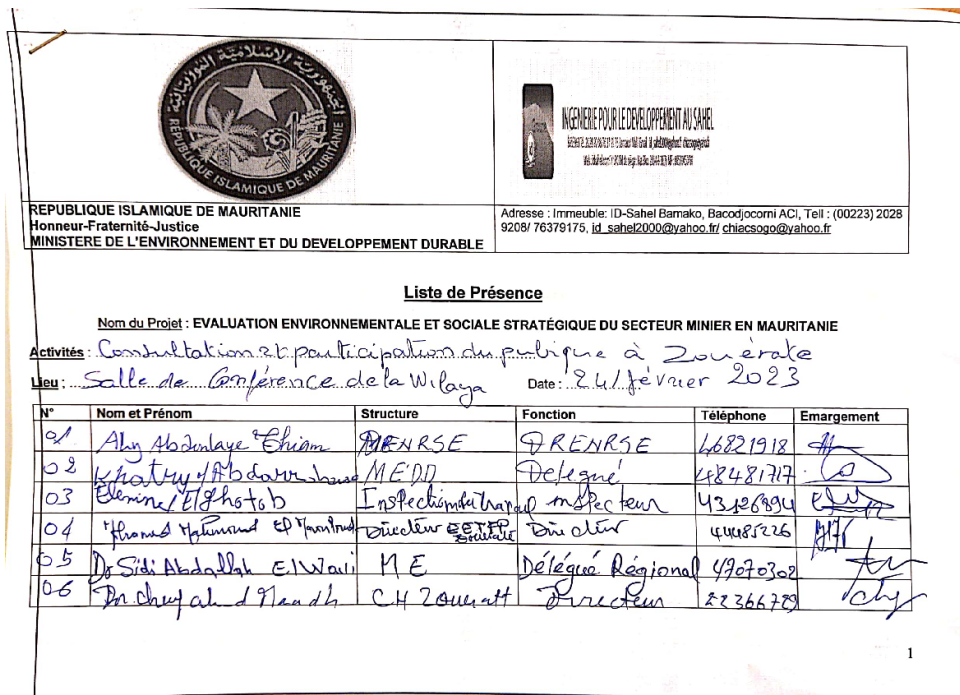 الجمهورية الإسلامية الموريتانية
REPUBLIQUE ISLAMIQUE DE MAURITANIE
INGENIERIE POUR LE DEVELOPPEMENT AU SAHEL
REPUBLIQUE ISLAMIQUE DE MAURITANIE
Honneur-Fraternité-Justice
MINISTERE DE L'ENVIRONNEMENT ET DU DEVELOPPEMENT DURABLE
Adresse : Immeuble: ID-Sahel Bamako, Bacodjocorni ACI, Tell : (00223) 2028
9208/ 76379175, id_sahel2000@yahoo.fr/ chiacsogo@yahoo.fr
Liste de Présence
Nom du Projet : EVALUATION ENVIRONNEMENTALE ET SOCIALE STRATÉGIQUE DU SECTEUR MINIER EN MAURITANIE
Activités : Consultation et participation du publique à Zouérate
Lieu : Salle de Conférence de la Wilaya Date : 24/février 2023
N° Nom et Prénom Structure Fonction Téléphone Emargement
01 Aly Abdoulaye Thiam DRENRSE DRENRSE 46821918
02 Khatry MEDD Delegué 48481717
03 Elemine / Inspection du travail inspecteur 43126894
04 Mohamed El Directeur Directeur 44485226
05 Dr Sidi Abdallah El Wavi ME Délégué Régional 49070302
06 Dr. CH Zoueratt Directeur 22366729
1